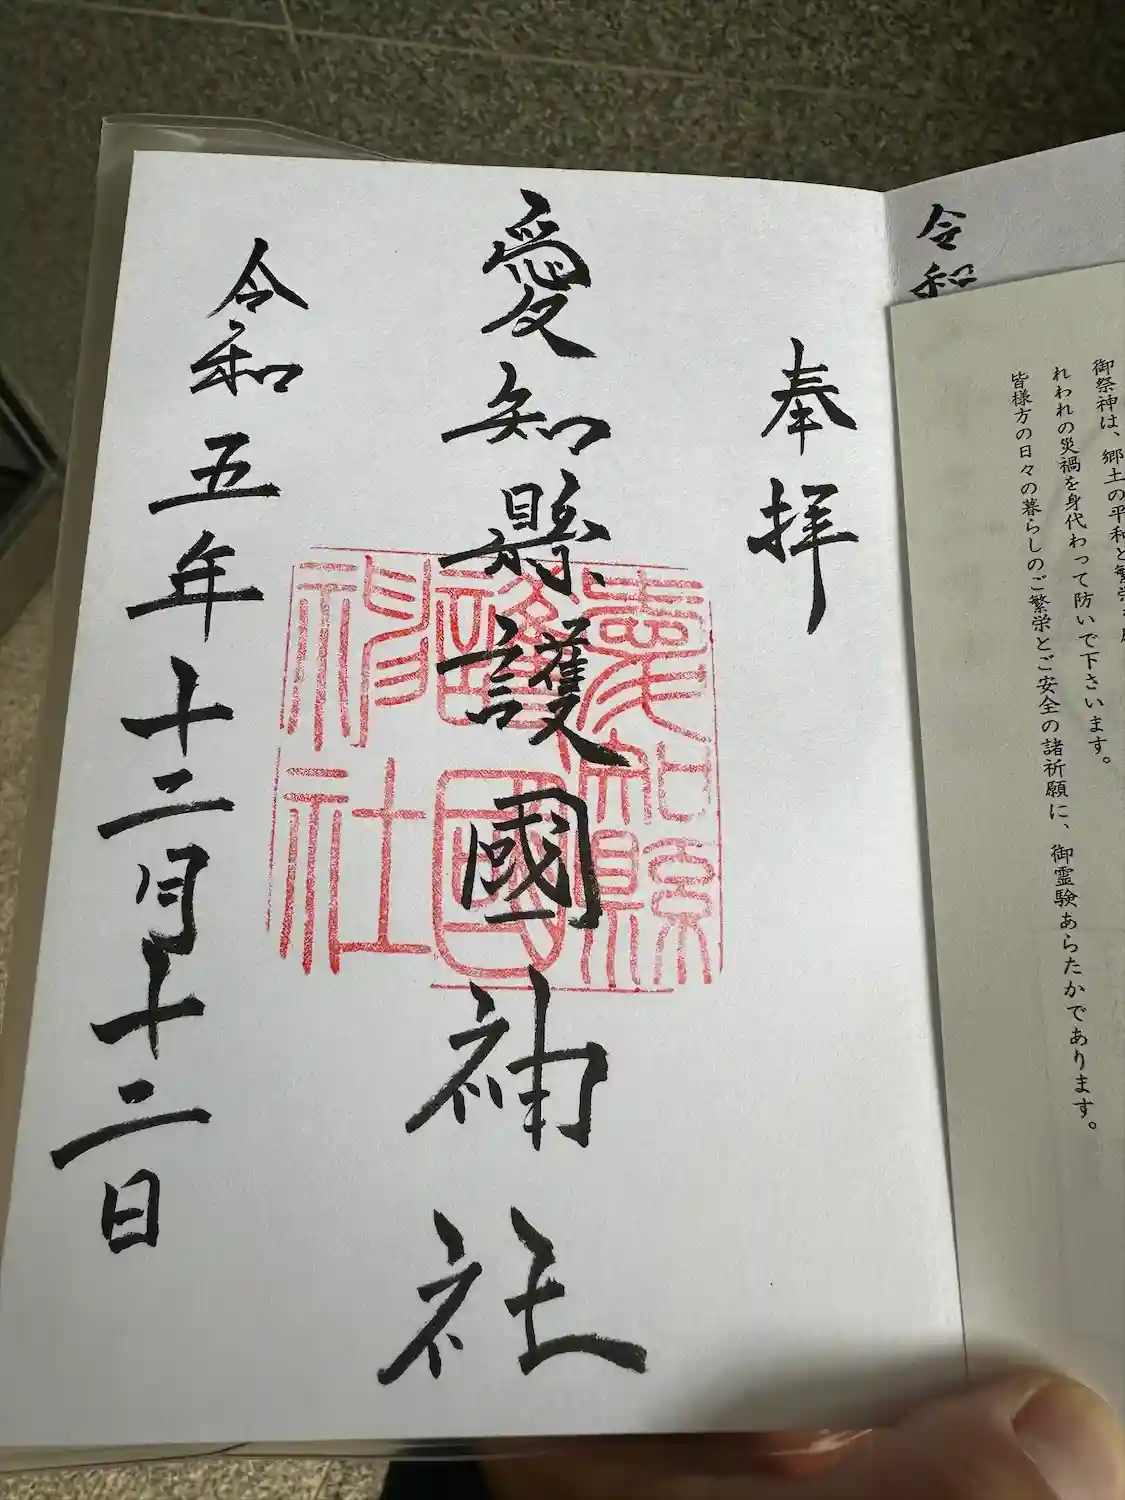 奉拝
愛知縣護國神社
令和五年十二月十二日
愛知縣
護國
神社
令和
御祭神は、郷土の平和と繁栄を
れわれの災禍を身代わって防いで下さいます。
皆様方の日々の暮らしのご繁栄とご安全の諸祈願に、御霊験あらたかであります。